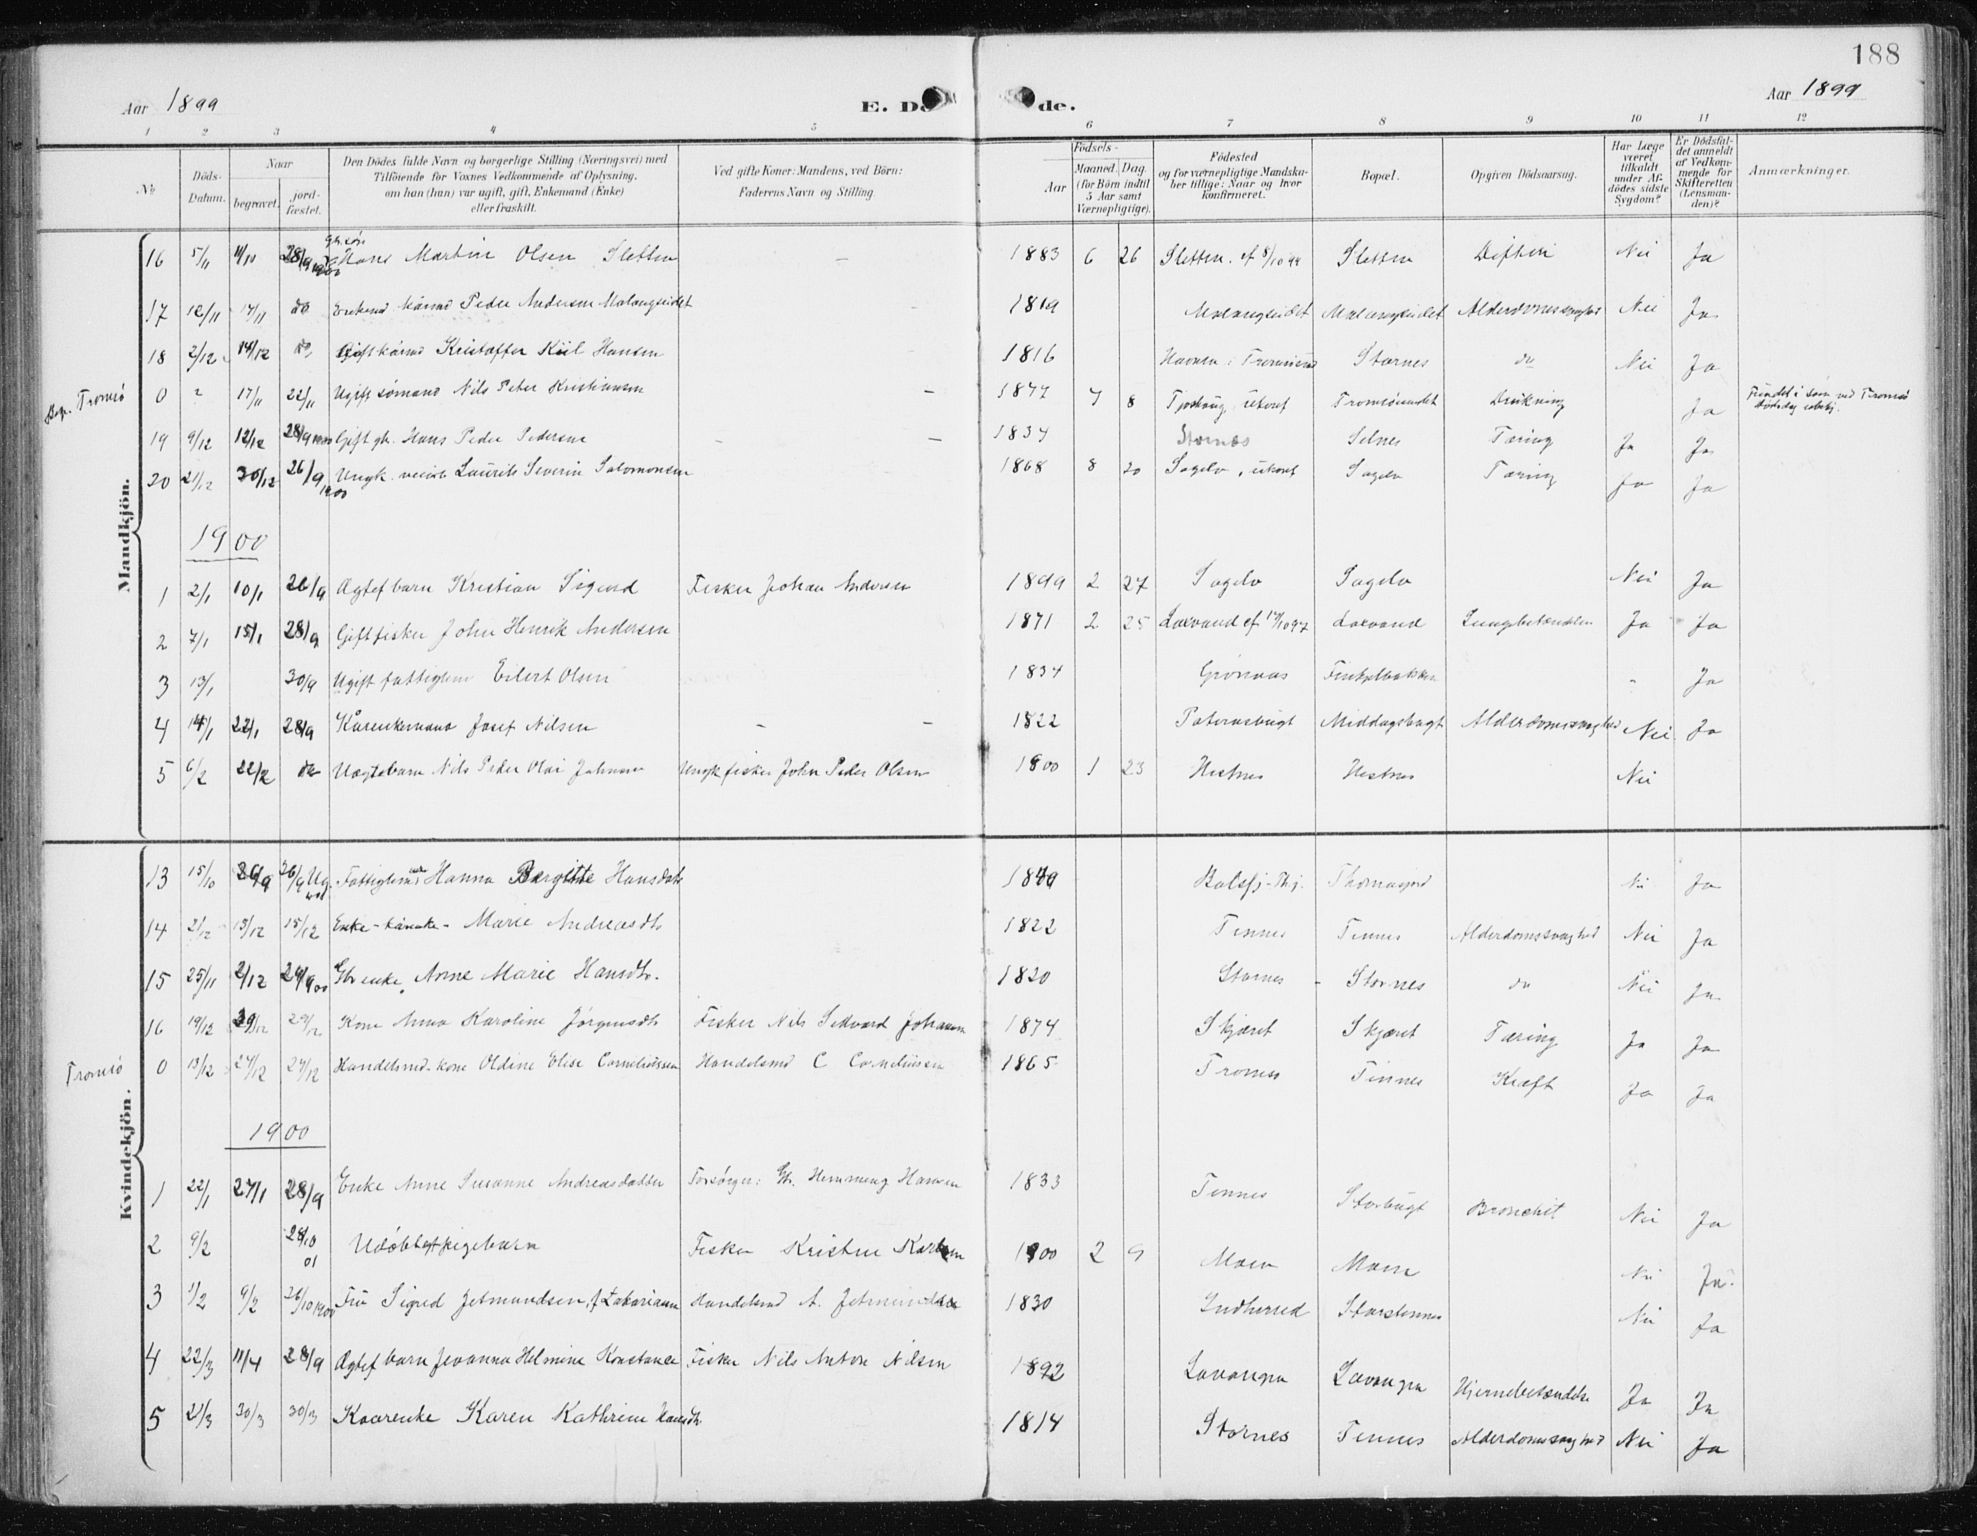 188
Aar 1899 E. Dö de. Aar 1899
1 2 3 4 5 6 7 8 9 10 11 12
No Döds-Datum. Naar begravet. jord-fæstet. Den Dödes fulde Navn og borgerlige Stilling (Næringsvei) med Tilföiende for Voxnes Vedkommende af Oplysning, om han (hun) var ugift, gift, Enkemand (Enke) eller fraskilt. Ved gifte Koner: Mandens, ved Börn: Faderens Navn og Stilling. Födsels- Aar Maaned. Dag. (for Börn indtil 5 Aar samt Værnepligtige). Födested og for værnepligtige Mandskaber tillige: Naar og hvor konfirmeret. Bopæl. Opgiven Dödsaarsag. Har Læge været tilkaldt under Afdödes sidste Sygdom? Er Dödsfaldet anmeldt af Vedkommende for Skifteretten (Lensmanden)? Anmærkninger.
Mandkjön.
16 5/11 11/10 28/9 1900 Hans Martin Olsen Sletten — 1883 6 26 Sletten. ef 8/10 99 Sletten Difteri Nei Ja
17 12/11 17/11 do Enkemd kårmd Peder Andersen Malangseidet — 1819 Malangseidet Malangseidet Alderdomssvaghed Nei Ja
18 2/12 14/12 do Gift kårmd Kristoffer Kiil Hansen 1816 Havnen i Tromsøsund Stornes do Nei Ja
Tromsö 0 - 17/11 22/11 Ugift sømand Nils Peter Kristiansen — 1877 7 8 ukonf Tromsösundet Drukning Ja Fundet i søen ved Tromsö
19 9/12 12/12 28/9 1900 Gift gb. Hans Peder Pedersen — — 1834 Stornes Selnes Tæring Ja Ja
20 21/12 30/12 26/9 1900 Ungk. Laurits Severin Salomonsen 1868 8 20 Sagelv, ukonf Sagelv Tæring Ja Ja
1900
1 2/1 10/1 26/9 Ægtef barn Kristian Sigurd Fisker Johan Andersen 1899 2 27 Sagelv Sagelv Nei Ja
2 7/1 15/1 28/9 Gift fisker John Henrik Andersen 1871 2 25 Laxvand ef 17/10 97 Laxvand Lungebetændelse Ja Ja
3 13/1 30/9 Ugift fattiglem Eilert Olsen 1834 Grönaas - Ja
4 14/1 22/1 28/9 Kårenkemand Josef Nilsen — — 1822 Middagsbugt Alderdomssvaghed Nei Ja
5 6/2 22/2 do Uægtebarn Nils Peder Olai Johnsen Ungk fisker John Peder Olsen 1900 1 23 Hestnes Hestnes Nei
Kvindekjön.
13 15/10 26/9 26/9 Ug. Fattiglem Hanna Bergitte Hansdatr 1849 Balsfj. Thomasjord Nei Ja
14 2/12 13/12 15/12 Enke - kårenke - Marie Andreasdtr 1822 Tennes Tennes Alderdomssvaghed Nei Ja
15 25/11 2/12 29/9 00 Gbr enke, Anne Marie Hansdtr. 1820 Stornes - Stornes do Nei Ja
16 19/12 29/12 29/12 Kone Anna Karoline Jörgensdtr Fisker Nils Edvard Johansen 1874 Skjæret Skjæret Tæring Ja Ja
Tromsö 0 13/12 27/12 27/12 Handelsmd. kone Oldine Elise Corneliussen Handelsmd C Corneliussen 1865 Tromsø Tennes Kræft Ja Ja
1900
1 22/1 27/1 28/9 Enke Anne Susanne Andreasdatter Forsørger: Gbr. Hemming Hansen 1833 Tennes Storbugt Bronchit Nei Ja
2 9/2 28/10 01 Udöbt pigebarn Fisker Kristen Karlsen 1900 2 9 Moen Moen Nei Ja
3 1/2 9/2 26/10 1900 Fru Sigrid Jetmundsen, f Zakariasen Handelsmd A. Jetmundsen 1830 Indherred Storstennes Nei Ja
4 22/3 11/4 28/9 Ægtef barn Jevanna Helmine Konstanse Fisker Nils Anton Nilsen 1892 Lavangen Lavangen Hjernebetændelse Ja Ja
5 21/3 30/3 30/3 Kaarenke Karen Kathrine Hansdtr 1814 Stornes Tennes Alderdomssvaghed Nei Ja